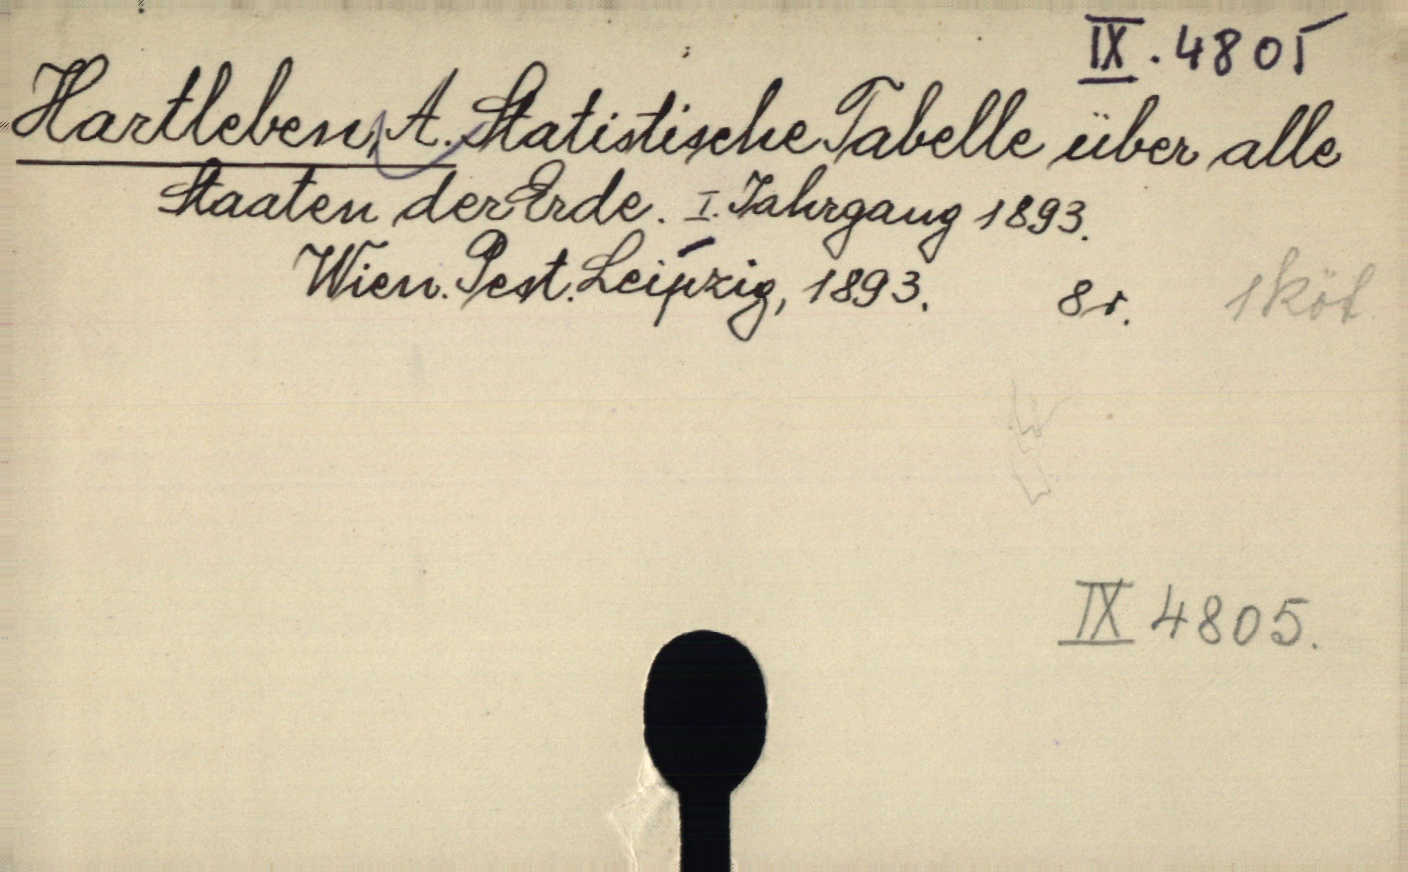 IX. 4805
Hartleben, A. Statistische Tabelle über alle
Staaten der Erde. I. Jahrgang 1893.
Wien. Pest. Leipzig, 1893. 8r. 1 köt
IX 4805.